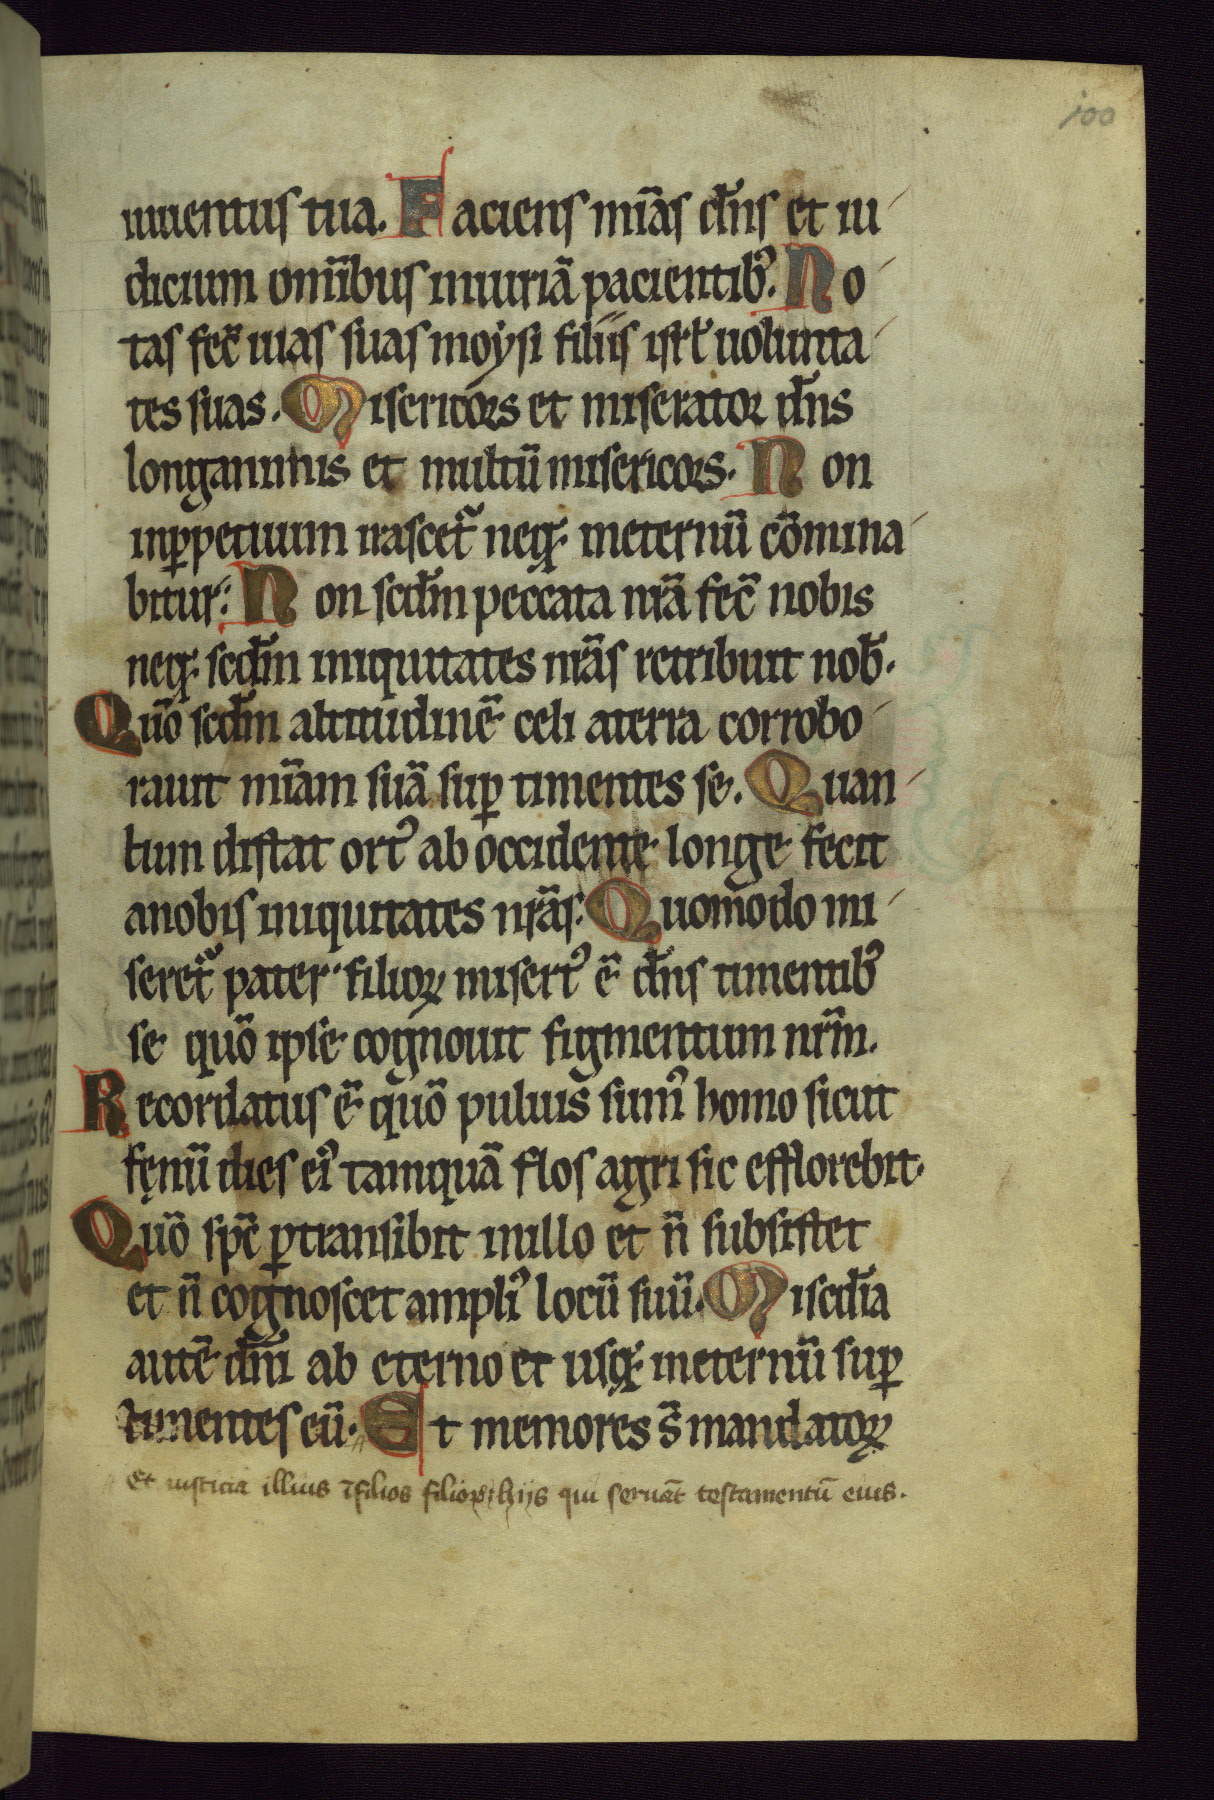 100
iuuentus tua. Faciens mīas dn̄s et iu
dicium om̄ibus iniuriā pacientib᷒. No
tas fec̄ uias suas moysi filiis isrl̄ uolunta
tes suas. Misericors et miserator dn̄s
longanimis et multū misericors. Non
inꝑpetuum irascet᷑ neqꝫ ineternū cōmina
bitur. Non scdm̄ peccata nr̄a fec̄ nobis
neqꝫ scdm̄ iniquitates nr̄as retribuit nob̄.
Quō scdm̄ altitudinē celi aterra corrobo
rauit mīam suā suꝑ timentes se. Quan
tum distat ort᷒ ab occidente longe fecit
anobis iniquitates nr̄as. Quomodo mi
seret᷑ pater filioꝝ misert᷒ ē dn̄s timentib᷒
se quō ipse cognouit figmentum nrm̄.
Recordatus ē quō puluis sum᷒ homo sicut
fęnū dies ei᷒ tamquā flos agri sic efflorebit.
Quō spc̄ ꝑtransibit inillo et n̄ subsistet
et n̄ cognoscet ampli᷒ locū suū. Miscdīa
autē dn̄i ab eterno et usqꝫ ineternū suꝑ
timentes eū. Et memores s̄ mandatoꝝ
Et iusticia illius ī filios filioꝝ hijs qui seruāt testamentū eius.